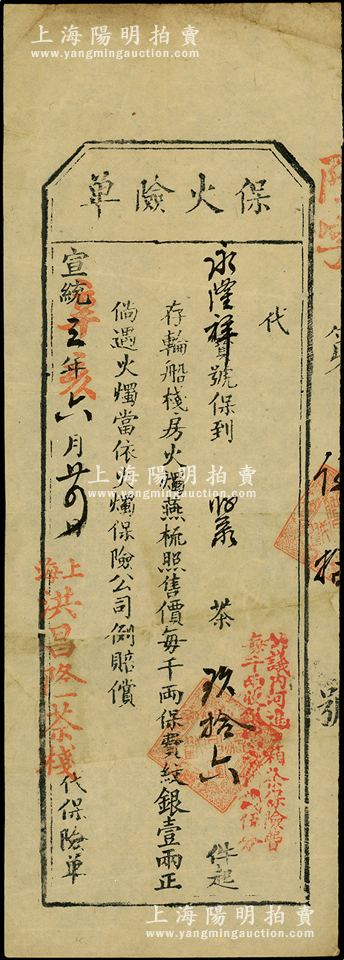 上海陽明拍賣
www.yangmingauction.com
保火險單
代
永隆祥寶號保到 茶 玖拾六 件起
存輪船棧房火燭燕梳照售價每千兩保費紋銀壹兩正
倘遇火燭當依火燭保險公司例賠償
宣統三年六月廿四日
辛亥
上海洪昌隆茶棧代保險單
公議內河進
箱茶保險費
每千兩
伍分
第 伍拾 號
上海陽明拍賣
www.yangmingauction.com
上海陽明拍賣
www.yangmingauction.com